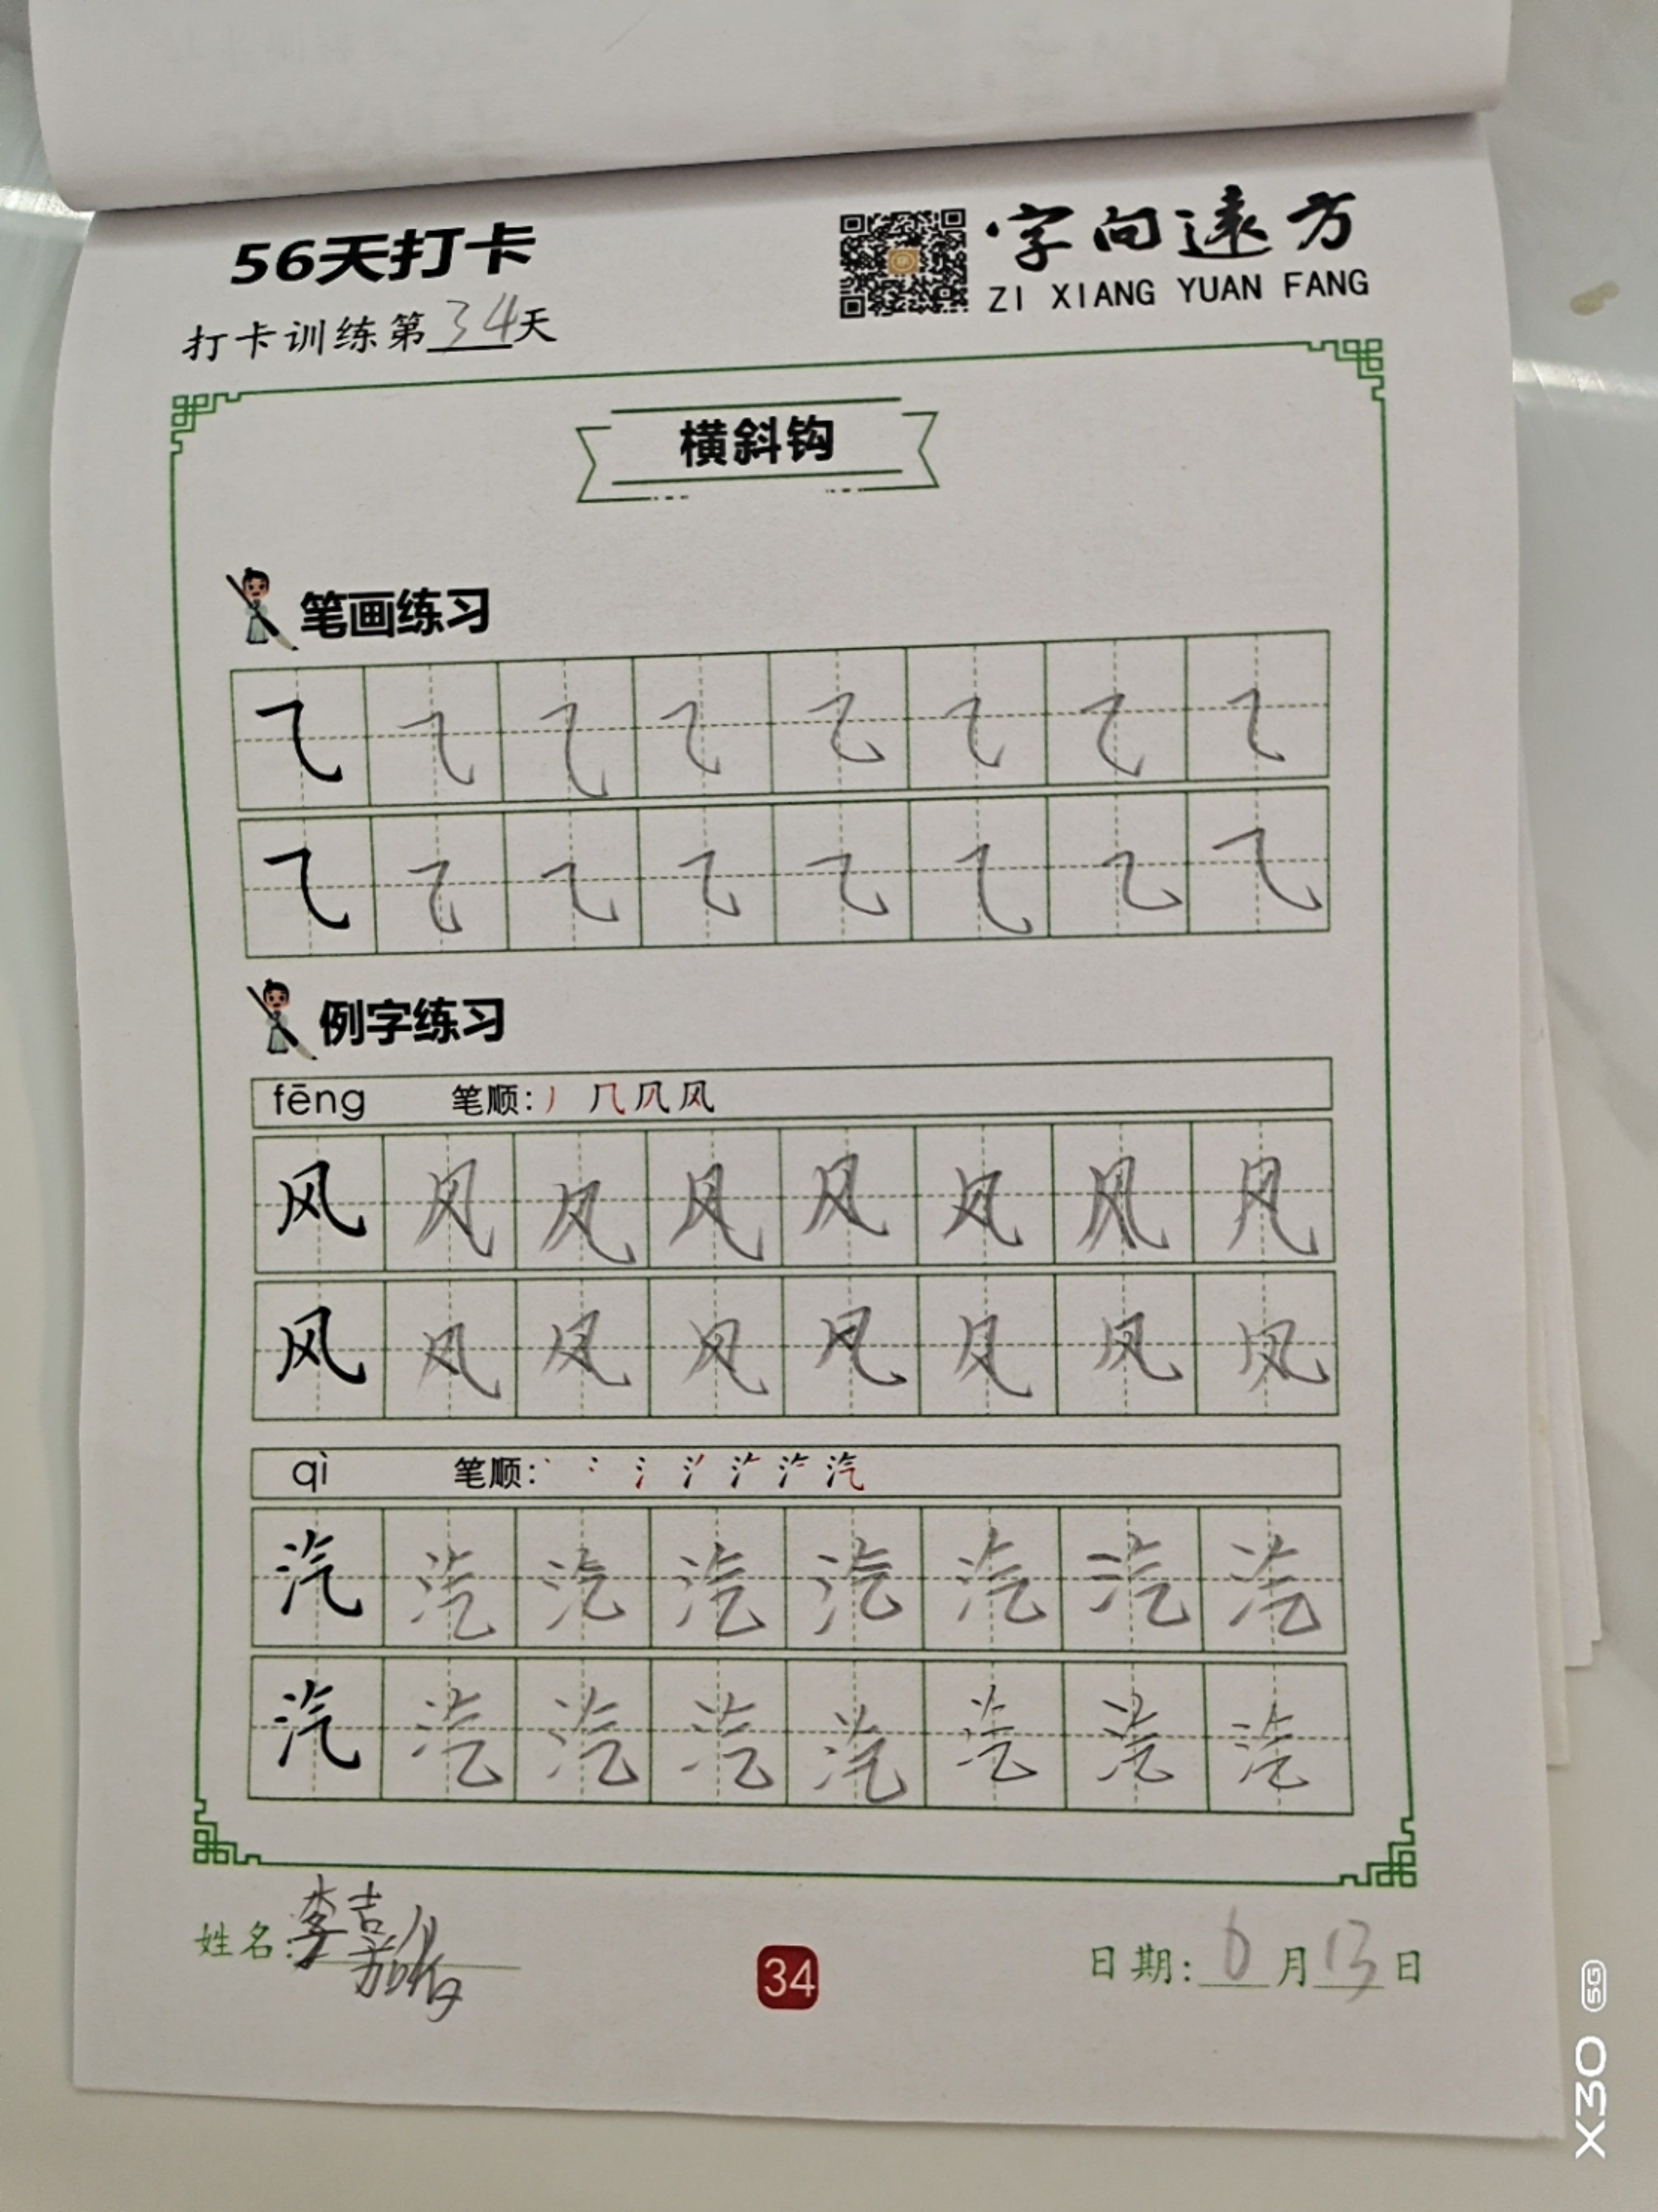 56天打卡
字向远方
ZI XIANG YUAN FANG
打卡训练第34天
横斜钩
笔画练习
㇈ ㇈ ㇈ ㇈ ㇈ ㇈ ㇈ ㇈
㇈ ㇈ ㇈ ㇈ ㇈ ㇈ ㇈ ㇈
例字练习
fēng 笔顺:
风 风 风 风 风 风 风 风
风 风 风 风 风 风 风 风
qì 笔顺:
汽 汽 汽 汽 汽 汽 汽 汽
汽 汽 汽 汽 汽 汽 汽 汽
姓名:李
34
日期:6月13日
X30 5G